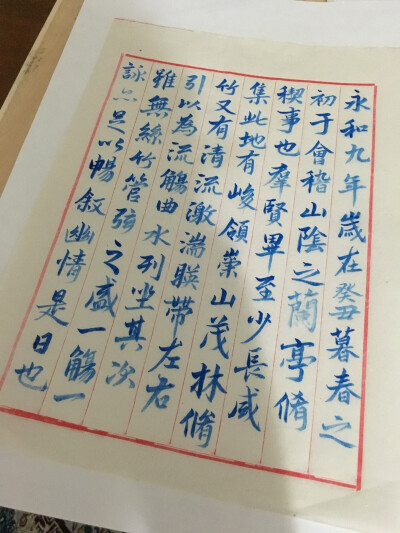 永和九年歲在癸丑暮春之
初于會稽山陰之蘭亭脩
禊事也羣賢畢至少長咸
集此地有峻領崇山茂林脩
竹又有清流激湍暎帶左右
引以為流觴曲水列坐其次
雖無絲竹管弦之盛一觴一
詠亦足以暢叙幽情是日也